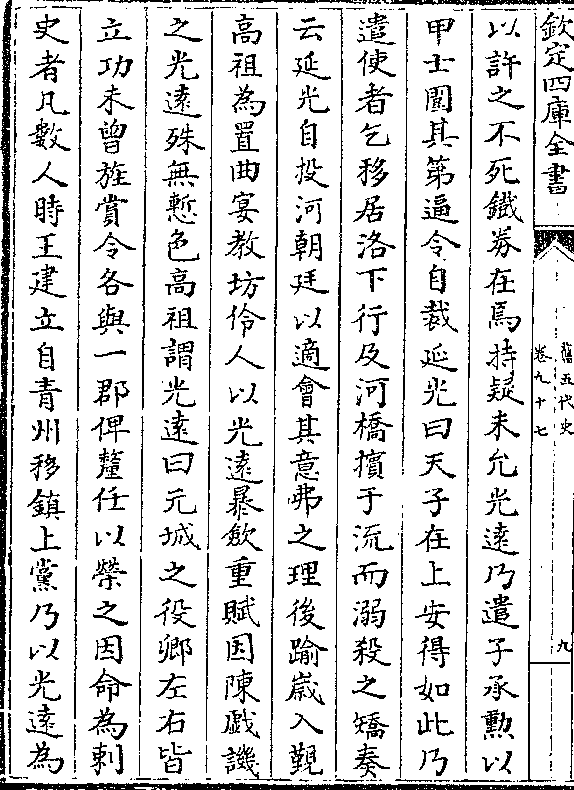 欽定四庫全書
舊五代史
卷九十七
九
以許之不死鐵券在焉持疑未允光遠乃遣子承勲以
甲士圍其第逼令自裁延光曰天子在上安得如此乃
遣使者乞移居洛下行及河橋擯于流而溺殺之矯奏
云延光自投河朝廷以適會其意弗之理後踰嵗入覲
高祖為置曲宴教坊伶人以光遠暴斂重賦因陳戲譏
之光遠殊無慙色高祖謂光遠曰元城之役卿左右皆
立功未曾旌賞令各與一郡俾釐任以榮之因命為刺
史者凡數人時王建立自青州移鎮上黨乃以光遠為